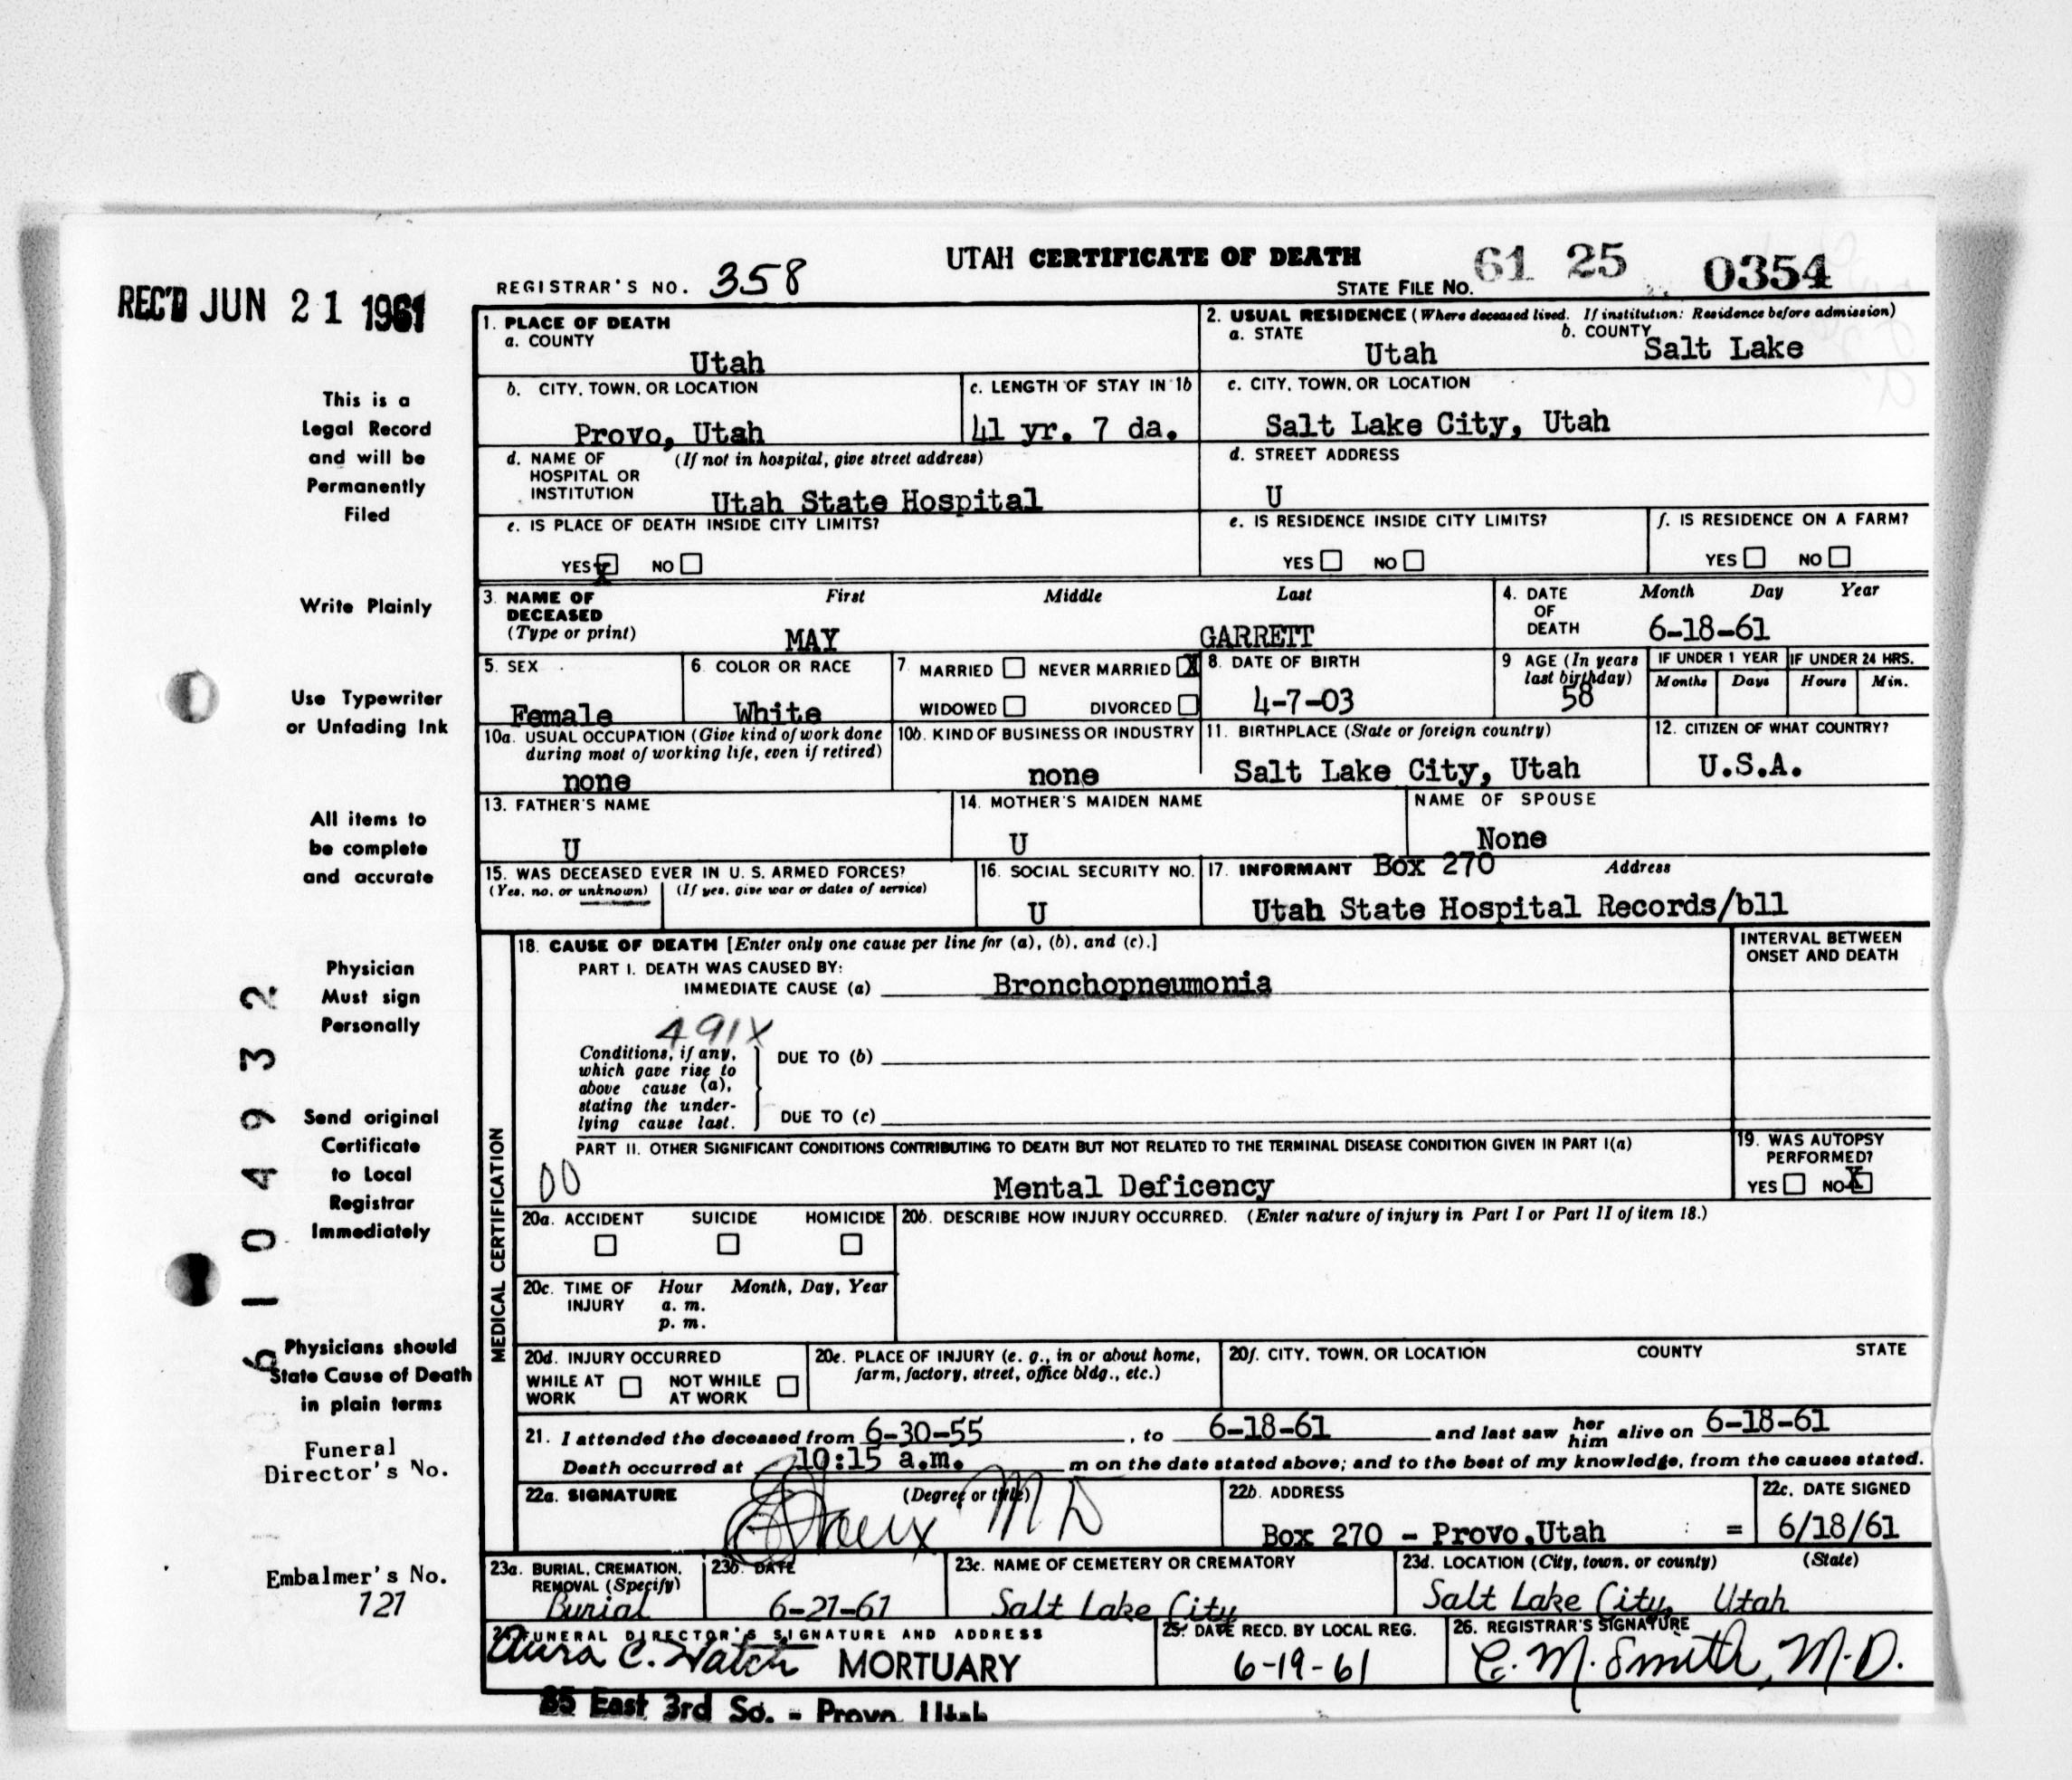 UTAH CERTIFICATE OF DEATH
REGISTRAR'S NO. 358
STATE FILE NO. 61 25 0354
REC'D JUN 21 1961
This is a
Legal Record
and will be
Permanently
Filed
Write Plainly
Use Typewriter
or Unfading Ink
All items to
be complete
and accurate
Physician
Must sign
Personally
Send original
Certificate
to Local
Registrar
Immediately
Physicians should
State Cause of Death
in plain terms
Funeral
Director's No.
Embalmer's No.
121
6104932
1. PLACE OF DEATH
a. COUNTY
Utah
b. CITY, TOWN, OR LOCATION
Provo, Utah
c. LENGTH OF STAY IN 1b
41 yr. 7 da.
d. NAME OF (If not in hospital, give street address)
HOSPITAL OR
INSTITUTION
Utah State Hospital
e. IS PLACE OF DEATH INSIDE CITY LIMITS?
YES X NO
2. USUAL RESIDENCE (Where deceased lived. If institution: Residence before admission)
a. STATE
Utah
b. COUNTY
Salt Lake
c. CITY, TOWN, OR LOCATION
Salt Lake City, Utah
d. STREET ADDRESS
U
e. IS RESIDENCE INSIDE CITY LIMITS?
YES NO
f. IS RESIDENCE ON A FARM?
YES NO
3. NAME OF
DECEASED
(Type or print)
First Middle Last
MAY GARRETT
4. DATE
OF
DEATH
Month Day Year
6-18-61
5. SEX
Female
6. COLOR OR RACE
White
7. MARRIED NEVER MARRIED X
WIDOWED DIVORCED
8. DATE OF BIRTH
4-7-03
9 AGE (In years
last birthday)
58
IF UNDER 1 YEAR
Months Days
IF UNDER 24 HRS.
Hours Min.
10a. USUAL OCCUPATION (Give kind of work done
during most of working life, even if retired)
none
10b. KIND OF BUSINESS OR INDUSTRY
none
11. BIRTHPLACE (State or foreign country)
Salt Lake City, Utah
12. CITIZEN OF WHAT COUNTRY?
U.S.A.
13. FATHER'S NAME
U
14. MOTHER'S MAIDEN NAME
U
NAME OF SPOUSE
None
15. WAS DECEASED EVER IN U. S. ARMED FORCES?
(Yes, no, or unknown) (If yes, give war or dates of service)
16. SOCIAL SECURITY NO.
U
17. INFORMANT Box 270 Address
Utah State Hospital Records/bll
MEDICAL CERTIFICATION
18. CAUSE OF DEATH [Enter only one cause per line for (a), (b), and (c).]
INTERVAL BETWEEN
ONSET AND DEATH
PART I. DEATH WAS CAUSED BY:
IMMEDIATE CAUSE (a) Bronchopneumonia
491X
Conditions, if any,
which gave rise to
above cause (a),
stating the under-
lying cause last.
DUE TO (b)
DUE TO (c)
PART II. OTHER SIGNIFICANT CONDITIONS CONTRIBUTING TO DEATH BUT NOT RELATED TO THE TERMINAL DISEASE CONDITION GIVEN IN PART I(a)
00
Mental Deficency
19. WAS AUTOPSY
PERFORMED?
YES NO X
20a. ACCIDENT SUICIDE HOMICIDE
20b. DESCRIBE HOW INJURY OCCURRED. (Enter nature of injury in Part I or Part II of item 18.)
20c. TIME OF Hour Month, Day, Year
INJURY a. m.
p. m.
20d. INJURY OCCURRED
WHILE AT NOT WHILE
WORK AT WORK
20e. PLACE OF INJURY (e. g., in or about home,
farm, factory, street, office bldg., etc.)
20f. CITY, TOWN, OR LOCATION COUNTY STATE
21. I attended the deceased from 6-30-55, to 6-18-61 and last saw her him alive on 6-18-61
Death occurred at 10:15 a.m. m on the date stated above; and to the best of my knowledge, from the causes stated.
22a. SIGNATURE (Degree or title)
M D
22b. ADDRESS
Box 270 - Provo, Utah =
22c. DATE SIGNED
6/18/61
23a. BURIAL, CREMATION,
REMOVAL (Specify)
Burial
23b. DATE
6-21-61
23c. NAME OF CEMETERY OR CREMATORY
Salt Lake City
23d. LOCATION (City, town, or county) (State)
Salt Lake City, Utah
24. FUNERAL DIRECTOR'S SIGNATURE AND ADDRESS
C. Hatch MORTUARY
85 East 3rd So. - Provo, Utah
25. DATE RECD. BY LOCAL REG.
6-19-61
26. REGISTRAR'S SIGNATURE
C. M. Smith, M.D.